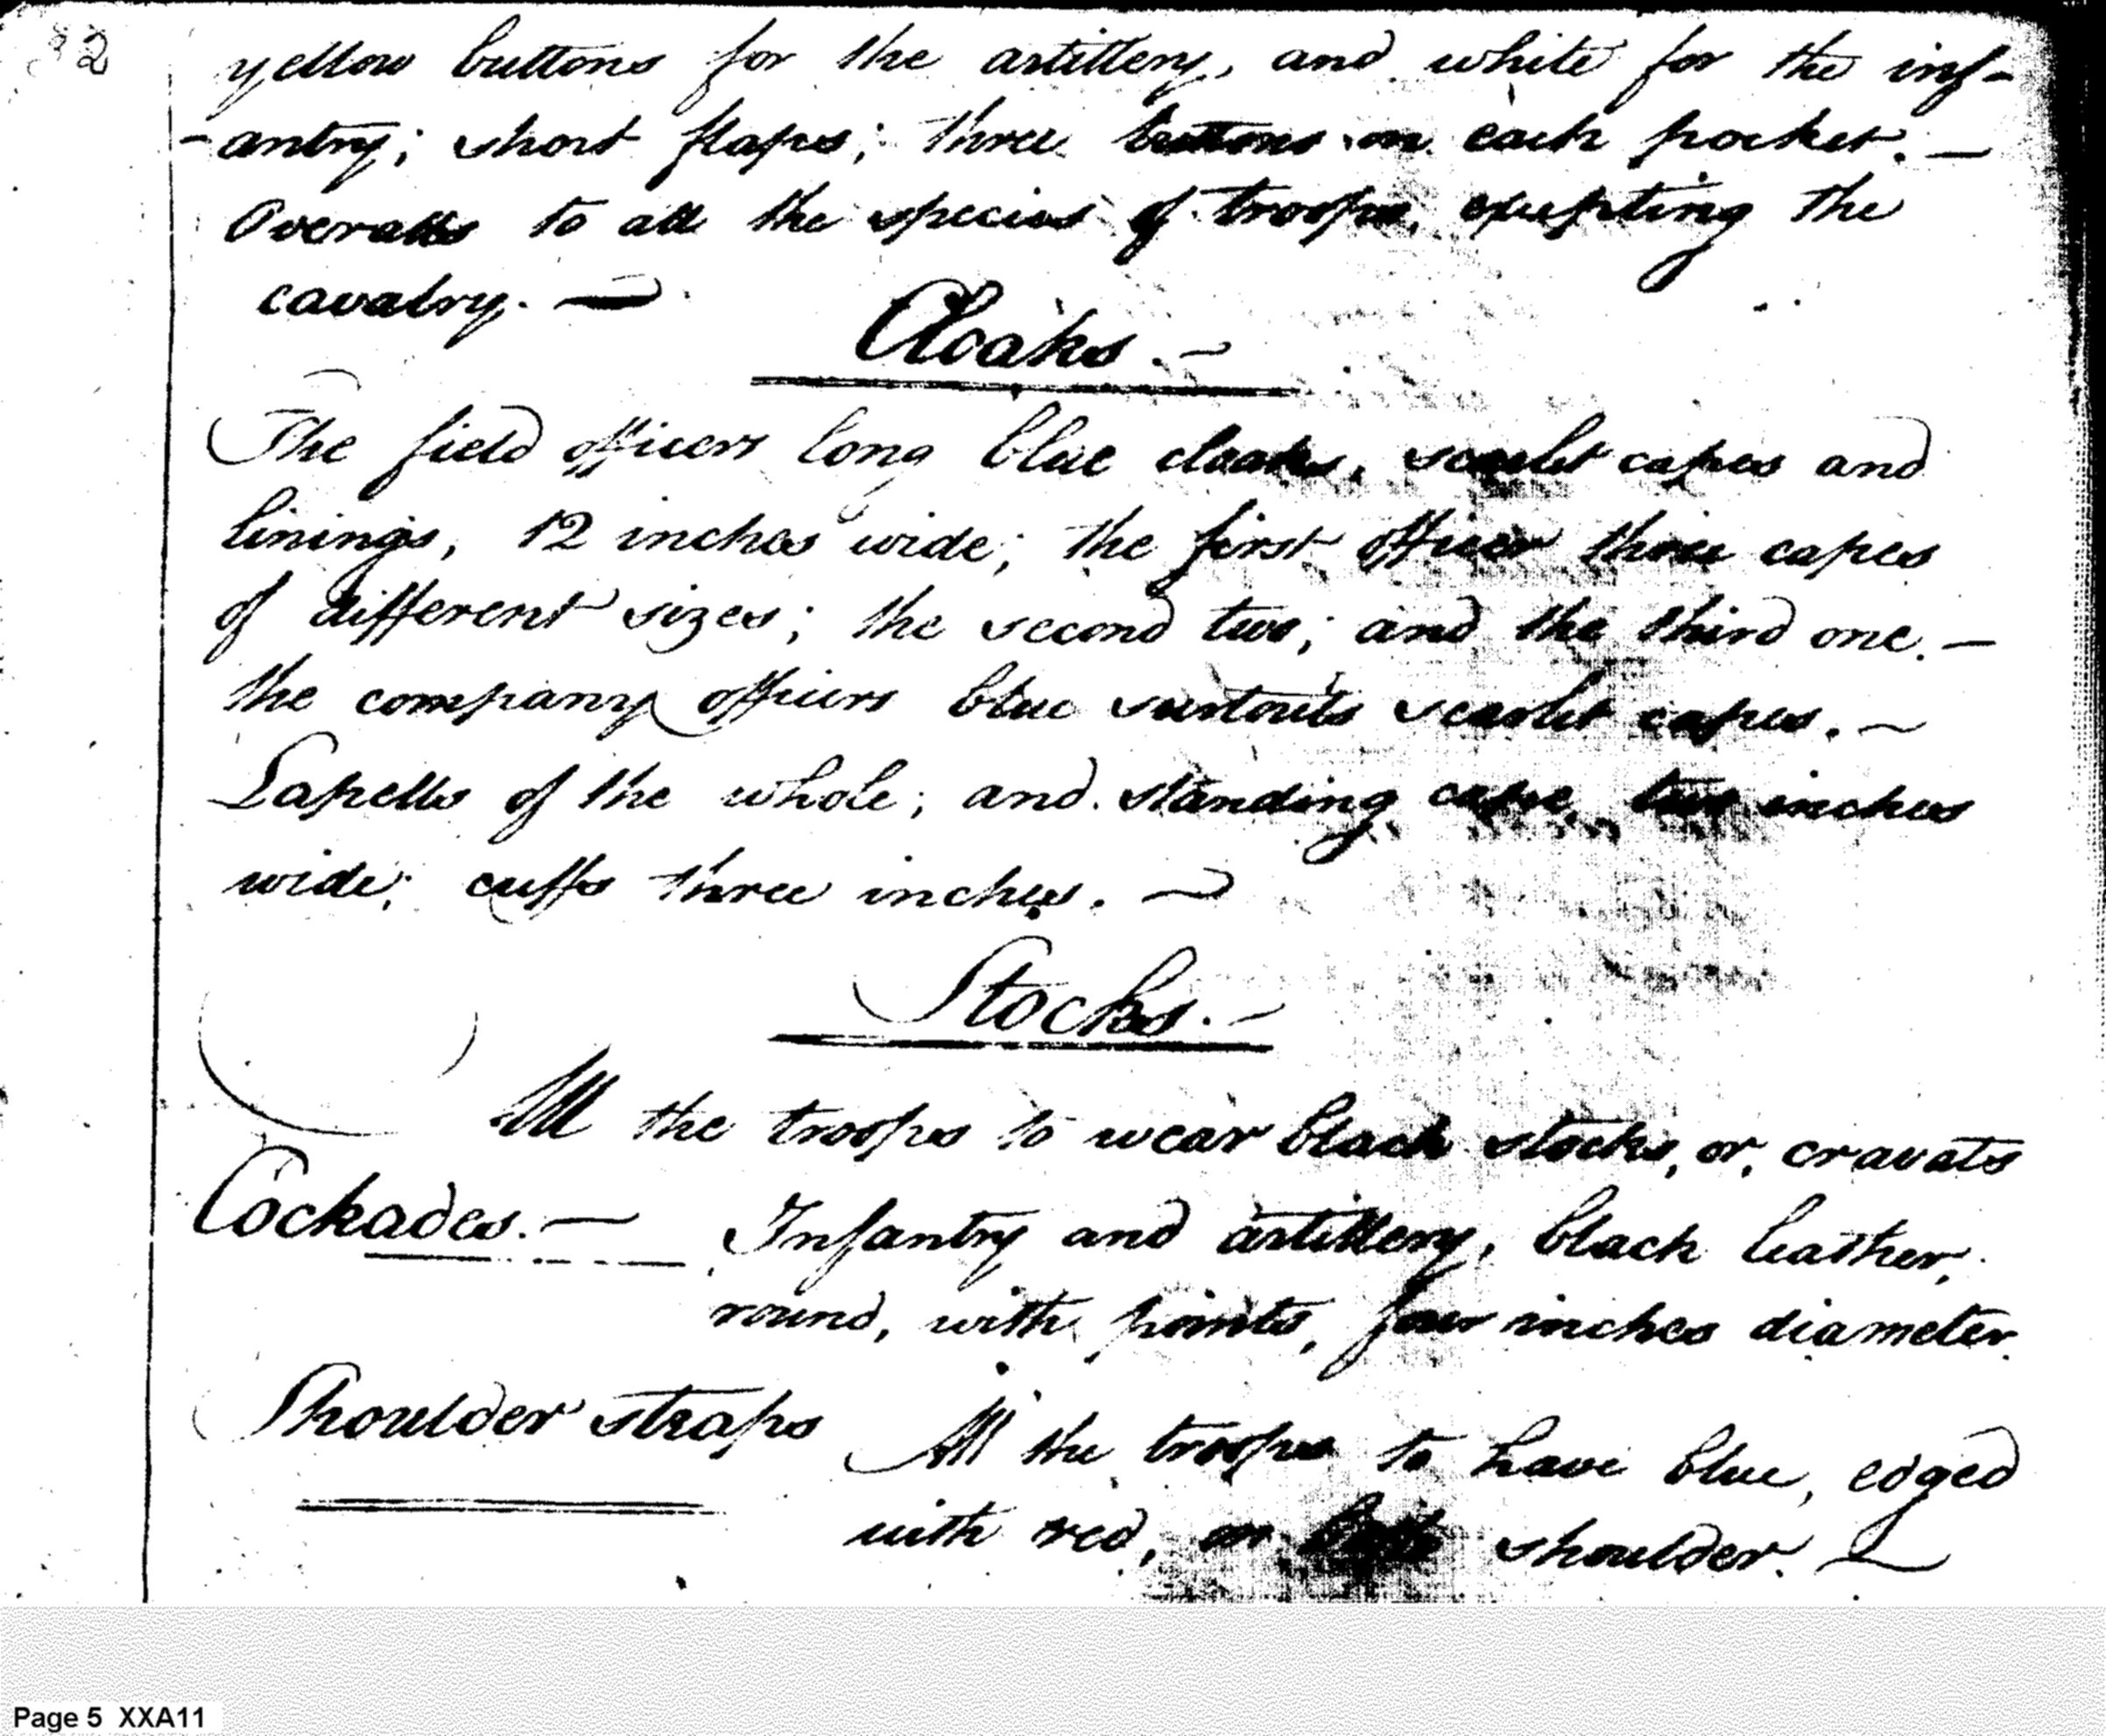 32
yellow buttons for the artillery, and white for the inf-
-antry; short flaps; three buttons on each pocket. —
Overalls to all the species of troops, excepting the
cavalry. —
Cloaks. —
The field officers long blue cloaks, scarlet capes and
linings, 12 inches wide; the first officer three capes
of different sizes; the second two; and the third one. —
the company officers blue surtouts scarlet capes. —
Lapells of the whole; and standing cape, two inches
wide; cuffs three inches. —
Stocks. —
All the troops to wear black stocks, or, cravats
Cockades. — Infantry and artillery, black leather,
round, with points, four inches diameter.
Shoulder straps All the troops to have blue, edged
with red, on both shoulder. —
Page 5 XXA11